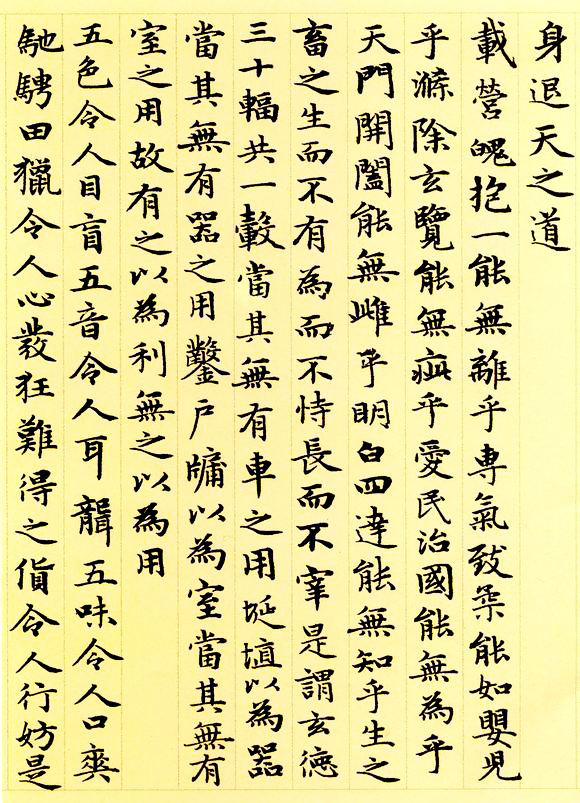 身退天之道
載營魄抱一能無離乎專氣致柔能如嬰兒
乎滌除玄覽能無疵乎愛民治國能無為乎
天門開闔能無雌乎明白四達能無知乎生之
畜之生而不有為而不恃長而不宰是謂玄德
三十輻共一轂當其無有車之用埏埴以為器
當其無有器之用鑿戶牖以為室當其無有
室之用故有之以為利無之以為用
五色令人目盲五音令人耳聾五味令人口爽
馳騁田獵令人心發狂難得之貨令人行妨是